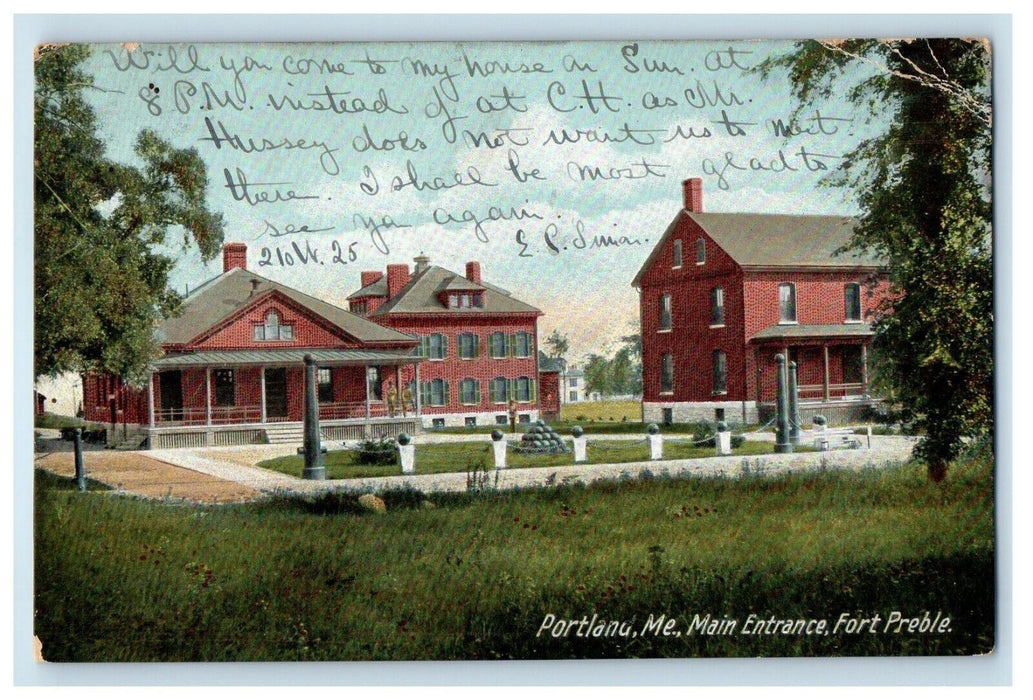 Will you come to my house on Sun. at
8 P.M. instead of at C.H. as Mr.
Hussey does not want us to meet
there. I shall be most glad to
see ya again.
E P.
210 W. 25
Portland, Me., Main Entrance, Fort Preble.